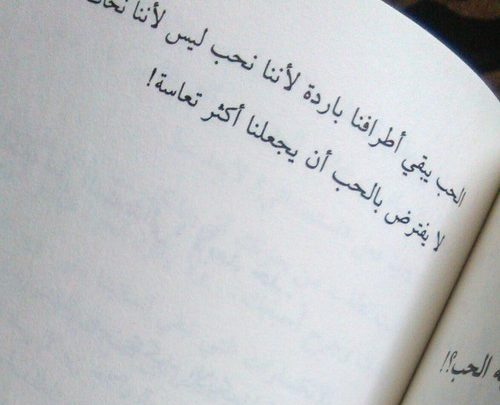 الحب يبقي أطرافنا باردة لأننا نحب ليس لأننا
لا يفترض بالحب أن يجعلنا أكثر تعاسة!
الحب؟!